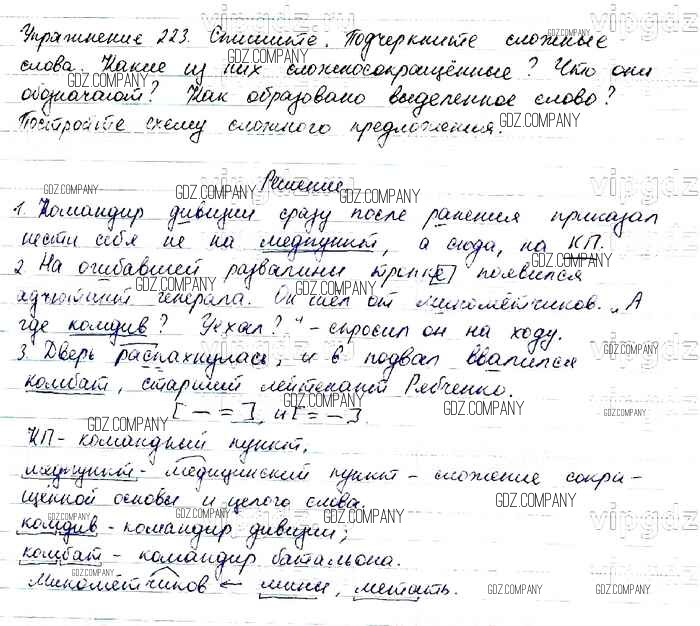 Упражнение 223. Спишите. Подчеркните сложные
слова. Какие из них сложносокращённые? Что они
обозначают? Как образовано выделенное слово?
Постройте схему сложного предложения.
Решение
1. Командир дивизии сразу после ранения приказал
нести себя не на медпункт, а сюда, на КП.
2. На огибавшей развалины тропке появился
адъютант генерала. Он шел от минометчиков. „А
где комдив? Уехал?" - спросил он на ходу.
3. Дверь распахнулась, и в подвал ввалился
комбат, старший лейтенант Рябченко.
[ — = ], и [ = — ].
КП - командный пункт,
медпункт - медицинский пункт - сложение сокра-
щённой основы и целого слова.
комдив - командир дивизии;
комбат - командир батальона.
Миномётчиков ← мина, метать.